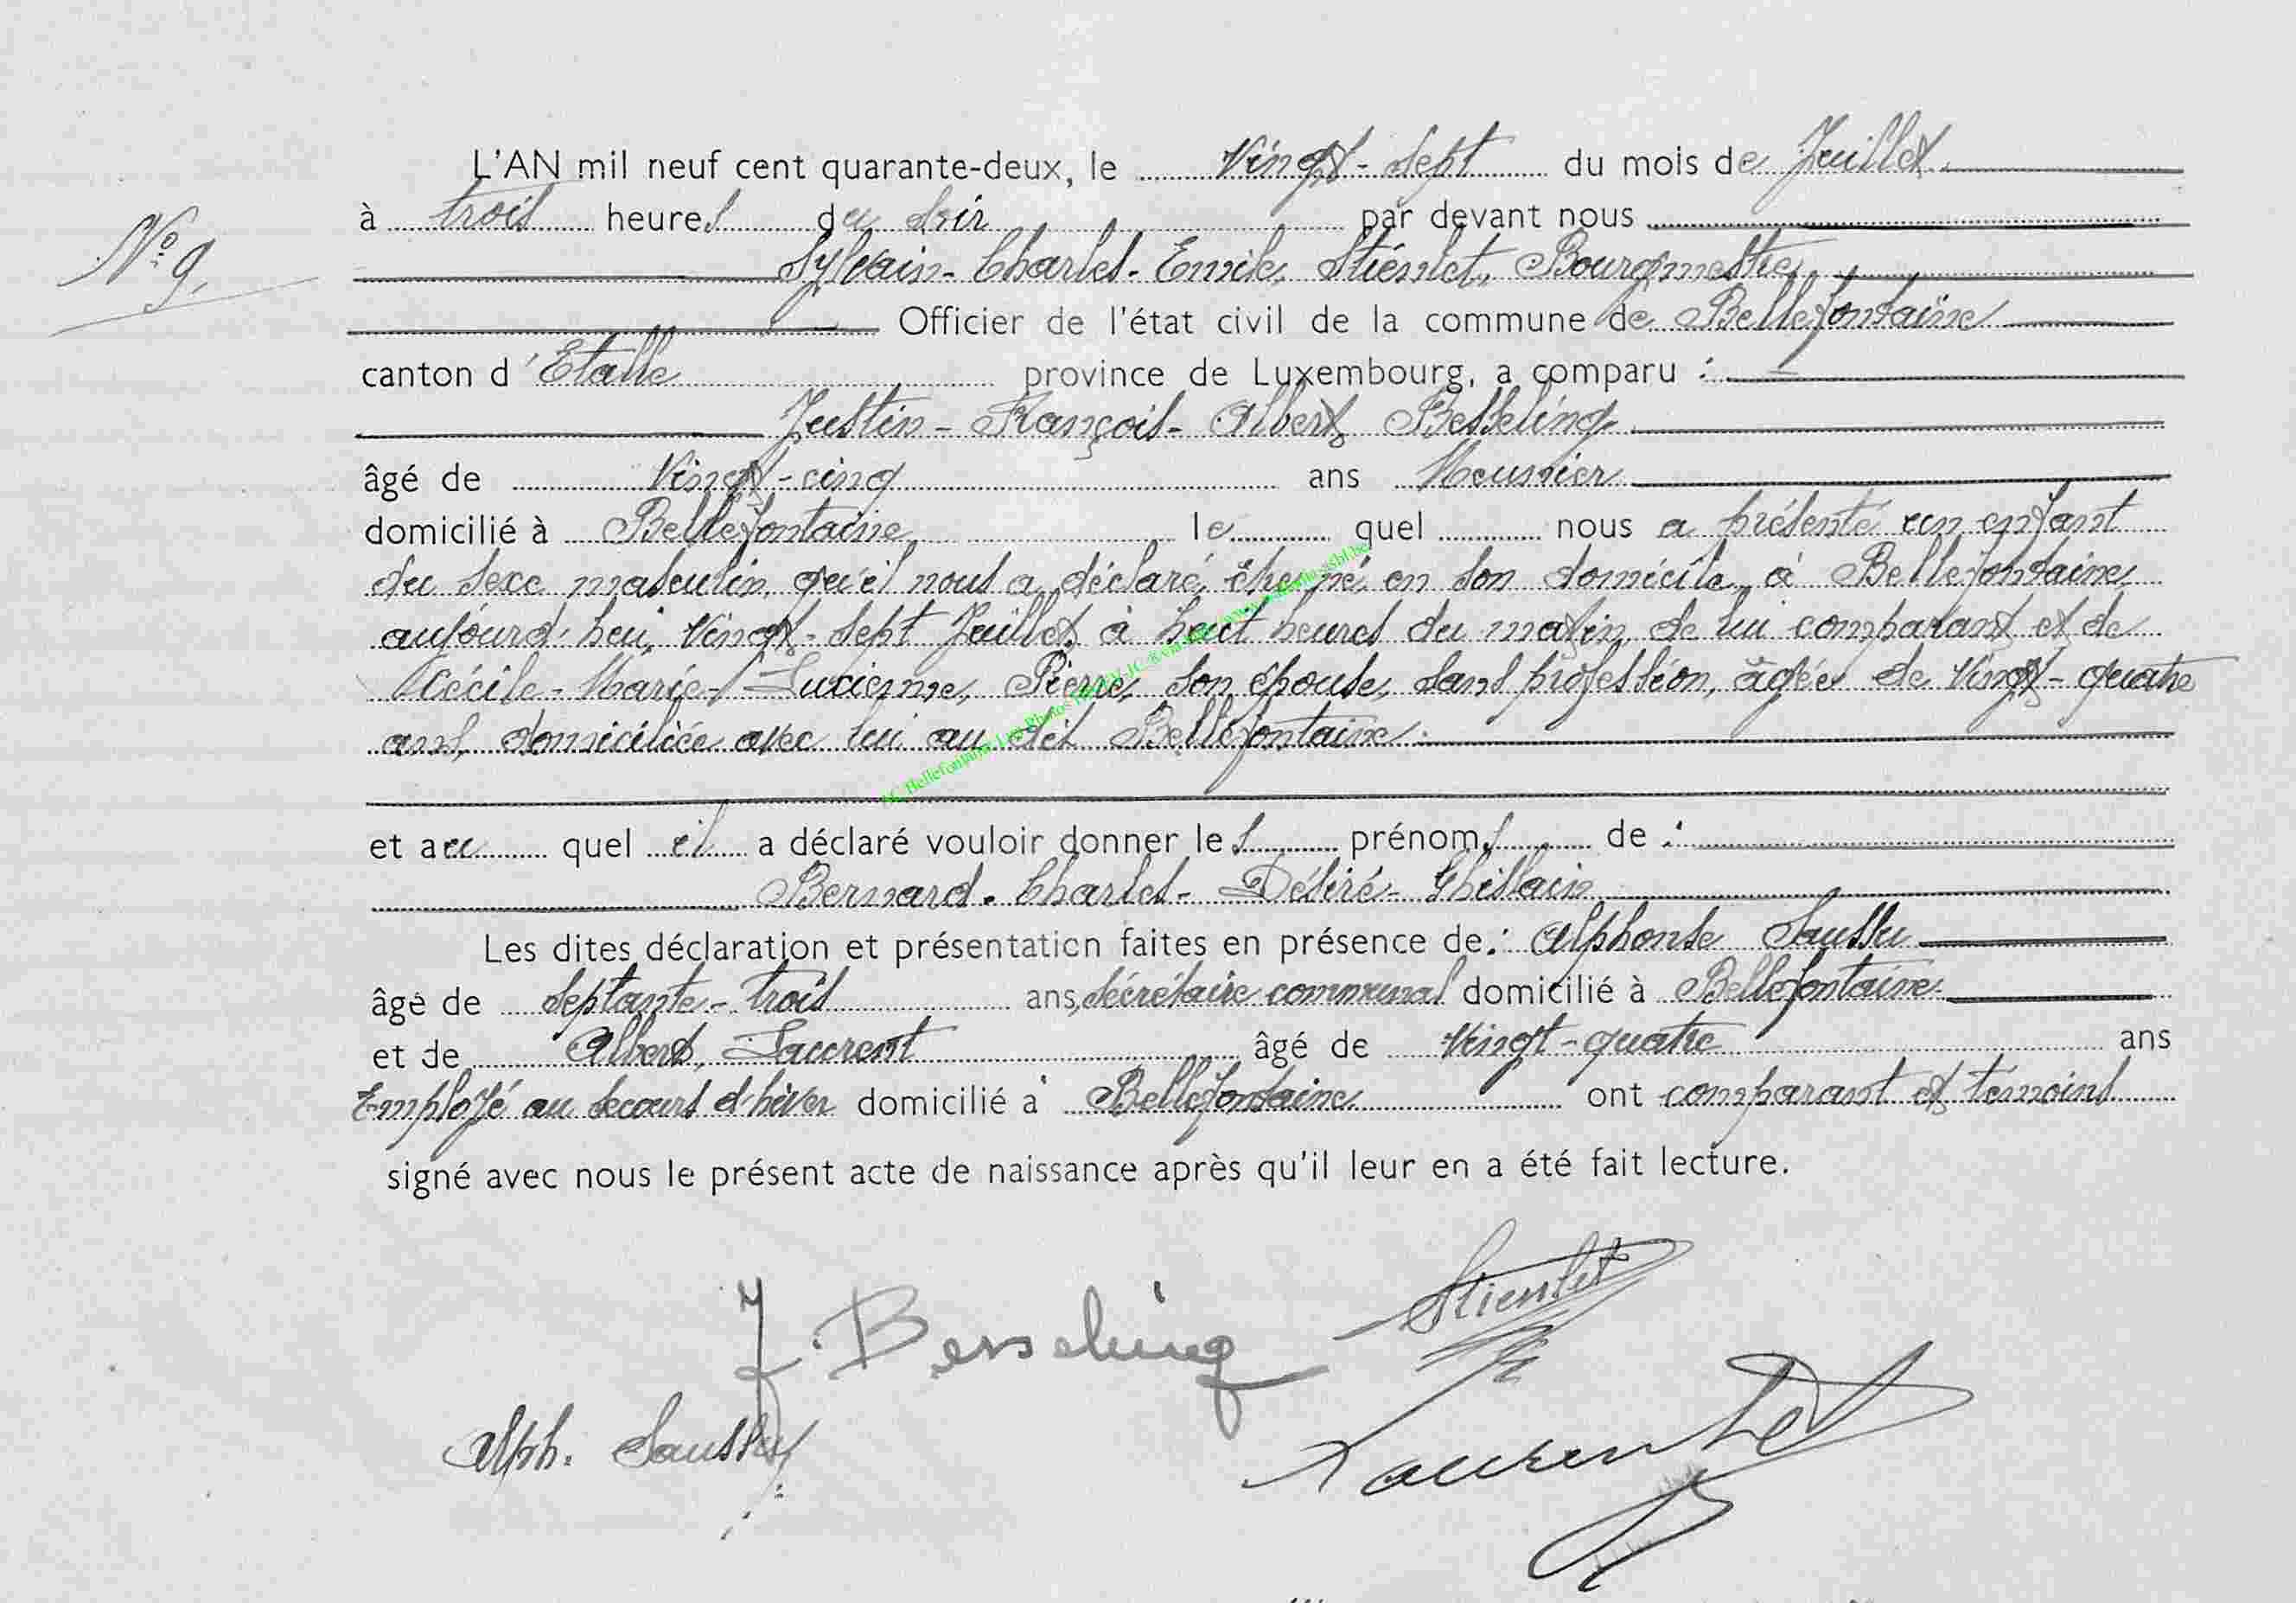 L'AN mil neuf cent quarante-deux, le Vingt-sept du mois de Juillet.
à trois heures du soir par devant nous
N° 9.
Sylvain-Charles-Emile, Stiénlet, Bourgmestre
Officier de l'état civil de la commune de Bellefontaine
canton d'Etalle province de Luxembourg, a comparu :
Justin-François-Albert, Besseling.
âgé de Vingt-cinq ans Meunier
domicilié à Bellefontaine lequel nous a présenté un enfant
du sexe masculin, qu'il nous a déclaré, être né, en son domicile, à Bellefontaine,
aujourd'hui, Vingt-sept Juillet, à huit heures du matin, de lui comparant et de
Cécile-Marie-Lucienne, Pierre, son épouse, sans profession, âgée de Vingt-quatre
ans, domiciliée avec lui au dit Bellefontaine.
et auquel il a déclaré vouloir donner les prénoms de :
Bernard-Charles-Désiré-Ghislain
Les dites déclaration et présentation faites en présence de : Alphonse Saussu
âgé de septante-trois ans, secrétaire communal domicilié à Bellefontaine
et de Albert, Laurent âgé de Vingt-quatre ans
Employé au secours d'hiver domicilié à Bellefontaine ont comparant et témoins
signé avec nous le présent acte de naissance après qu'il leur en a été fait lecture.
Stienlet
J. Besseling
Alph. Saussu
Laurent